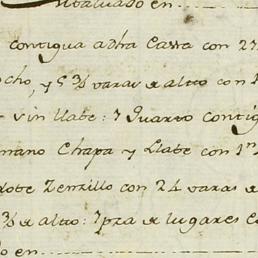 Entabuado en
contigua adha Cassa con 27
ocho, y 5 3/4 varas de alto con 1
sin llabe: 1 Quarto contig
mano Chapa y Llabe con 1
rote Zenzillo con 24 varas de
3/4 de alto: 1 pza de lugares co
do en